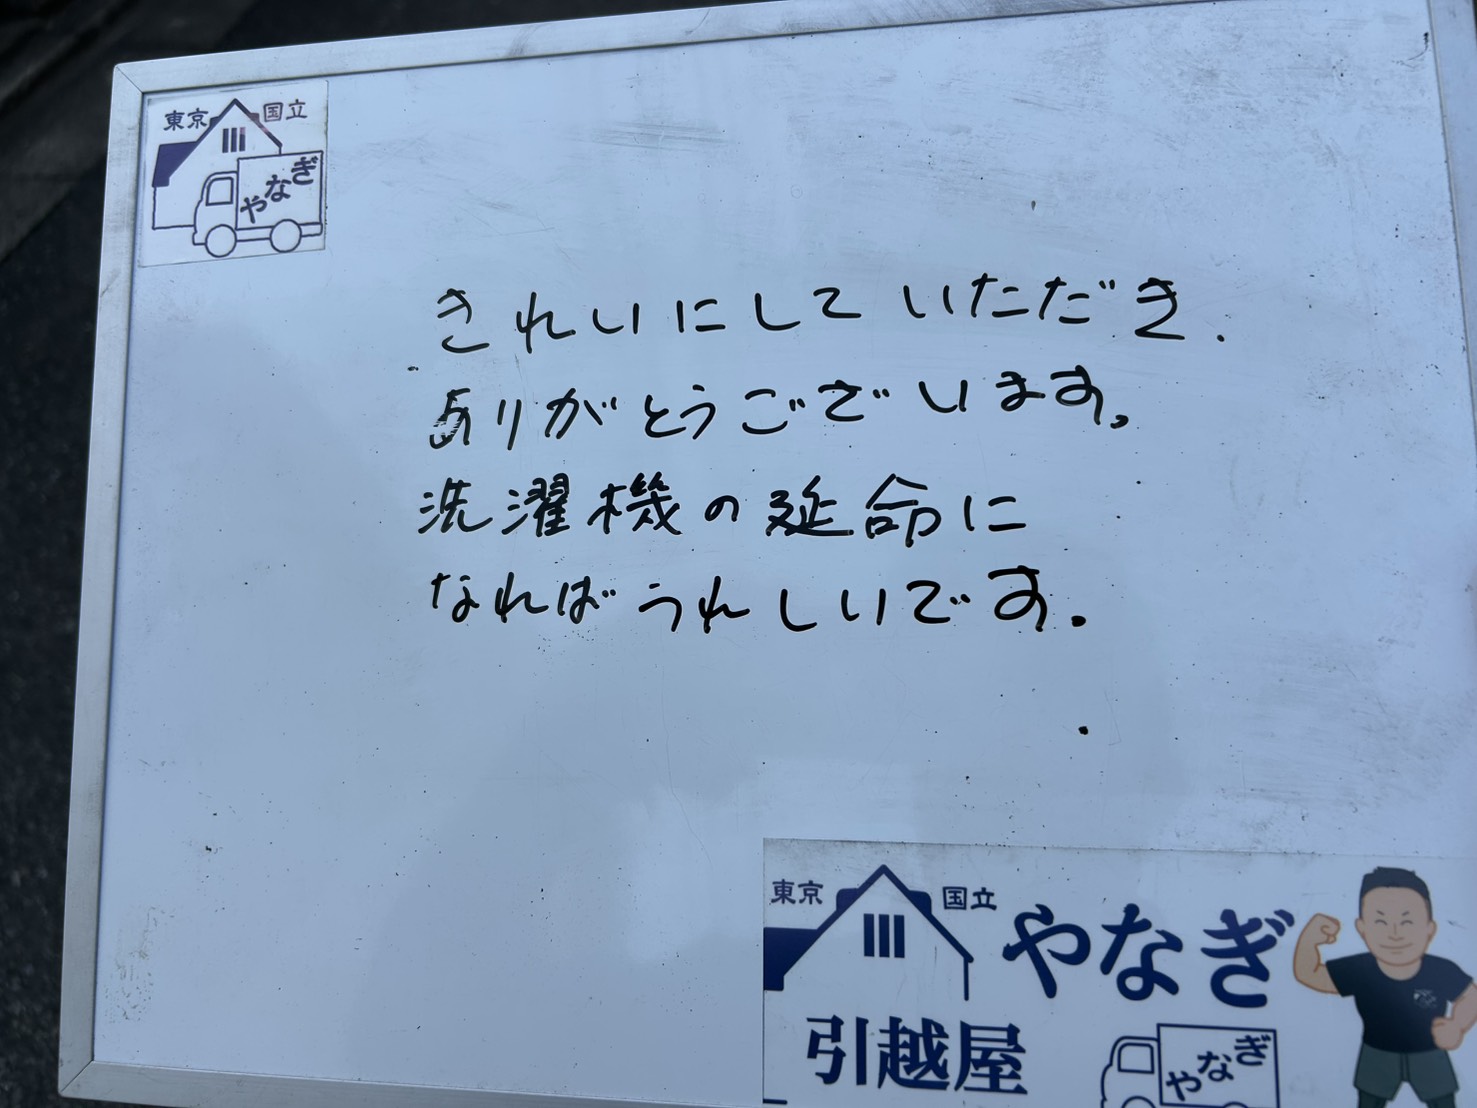 東京 国立
やなぎ
きれいにしていただき.
ありがとうございます。
洗濯機の延命に
なればうれしいです.
東京 国立
やなぎ
引越屋
やなぎ